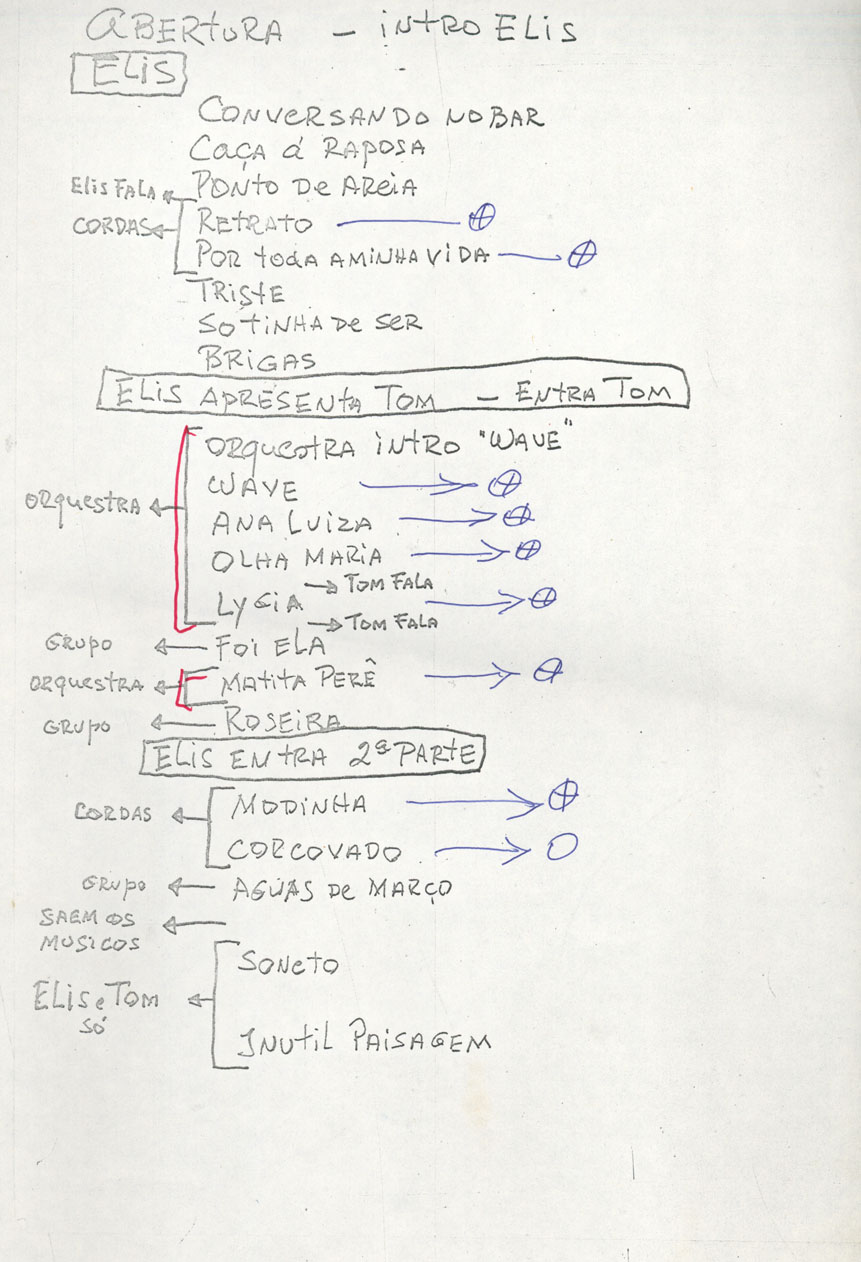 ABERTURA - INTRO ELIS
ELIS
CONVERSANDO NO BAR
CAÇA À RAPOSA
ELIS FALA ← PONTO DE AREIA
CORDAS ← RETRATO → ⊕
POR TODA A MINHA VIDA → ⊕
TRISTE
SO TINHA DE SER
BRIGAS
ELIS APRESENTA TOM - ENTRA TOM
ORQUESTRA INTRO "WAVE"
ORQUESTRA ← WAVE → ⊕
ANA LUIZA → ⊕
OLHA MARIA → ⊕
→ TOM FALA
LYGIA → ⊕
→ TOM FALA
GRUPO ← FOI ELA
ORQUESTRA ← MATITA PERÊ → ⊕
GRUPO ← ROSEIRA
ELIS ENTRA 2ª PARTE
CORDAS ← MODINHA → ⊕
CORCOVADO → O
GRUPO ← AGUAS DE MARÇO
SAEM OS ←
MUSICOS
SONETO
ELIS e TOM ←
SÓ
INUTIL PAISAGEM